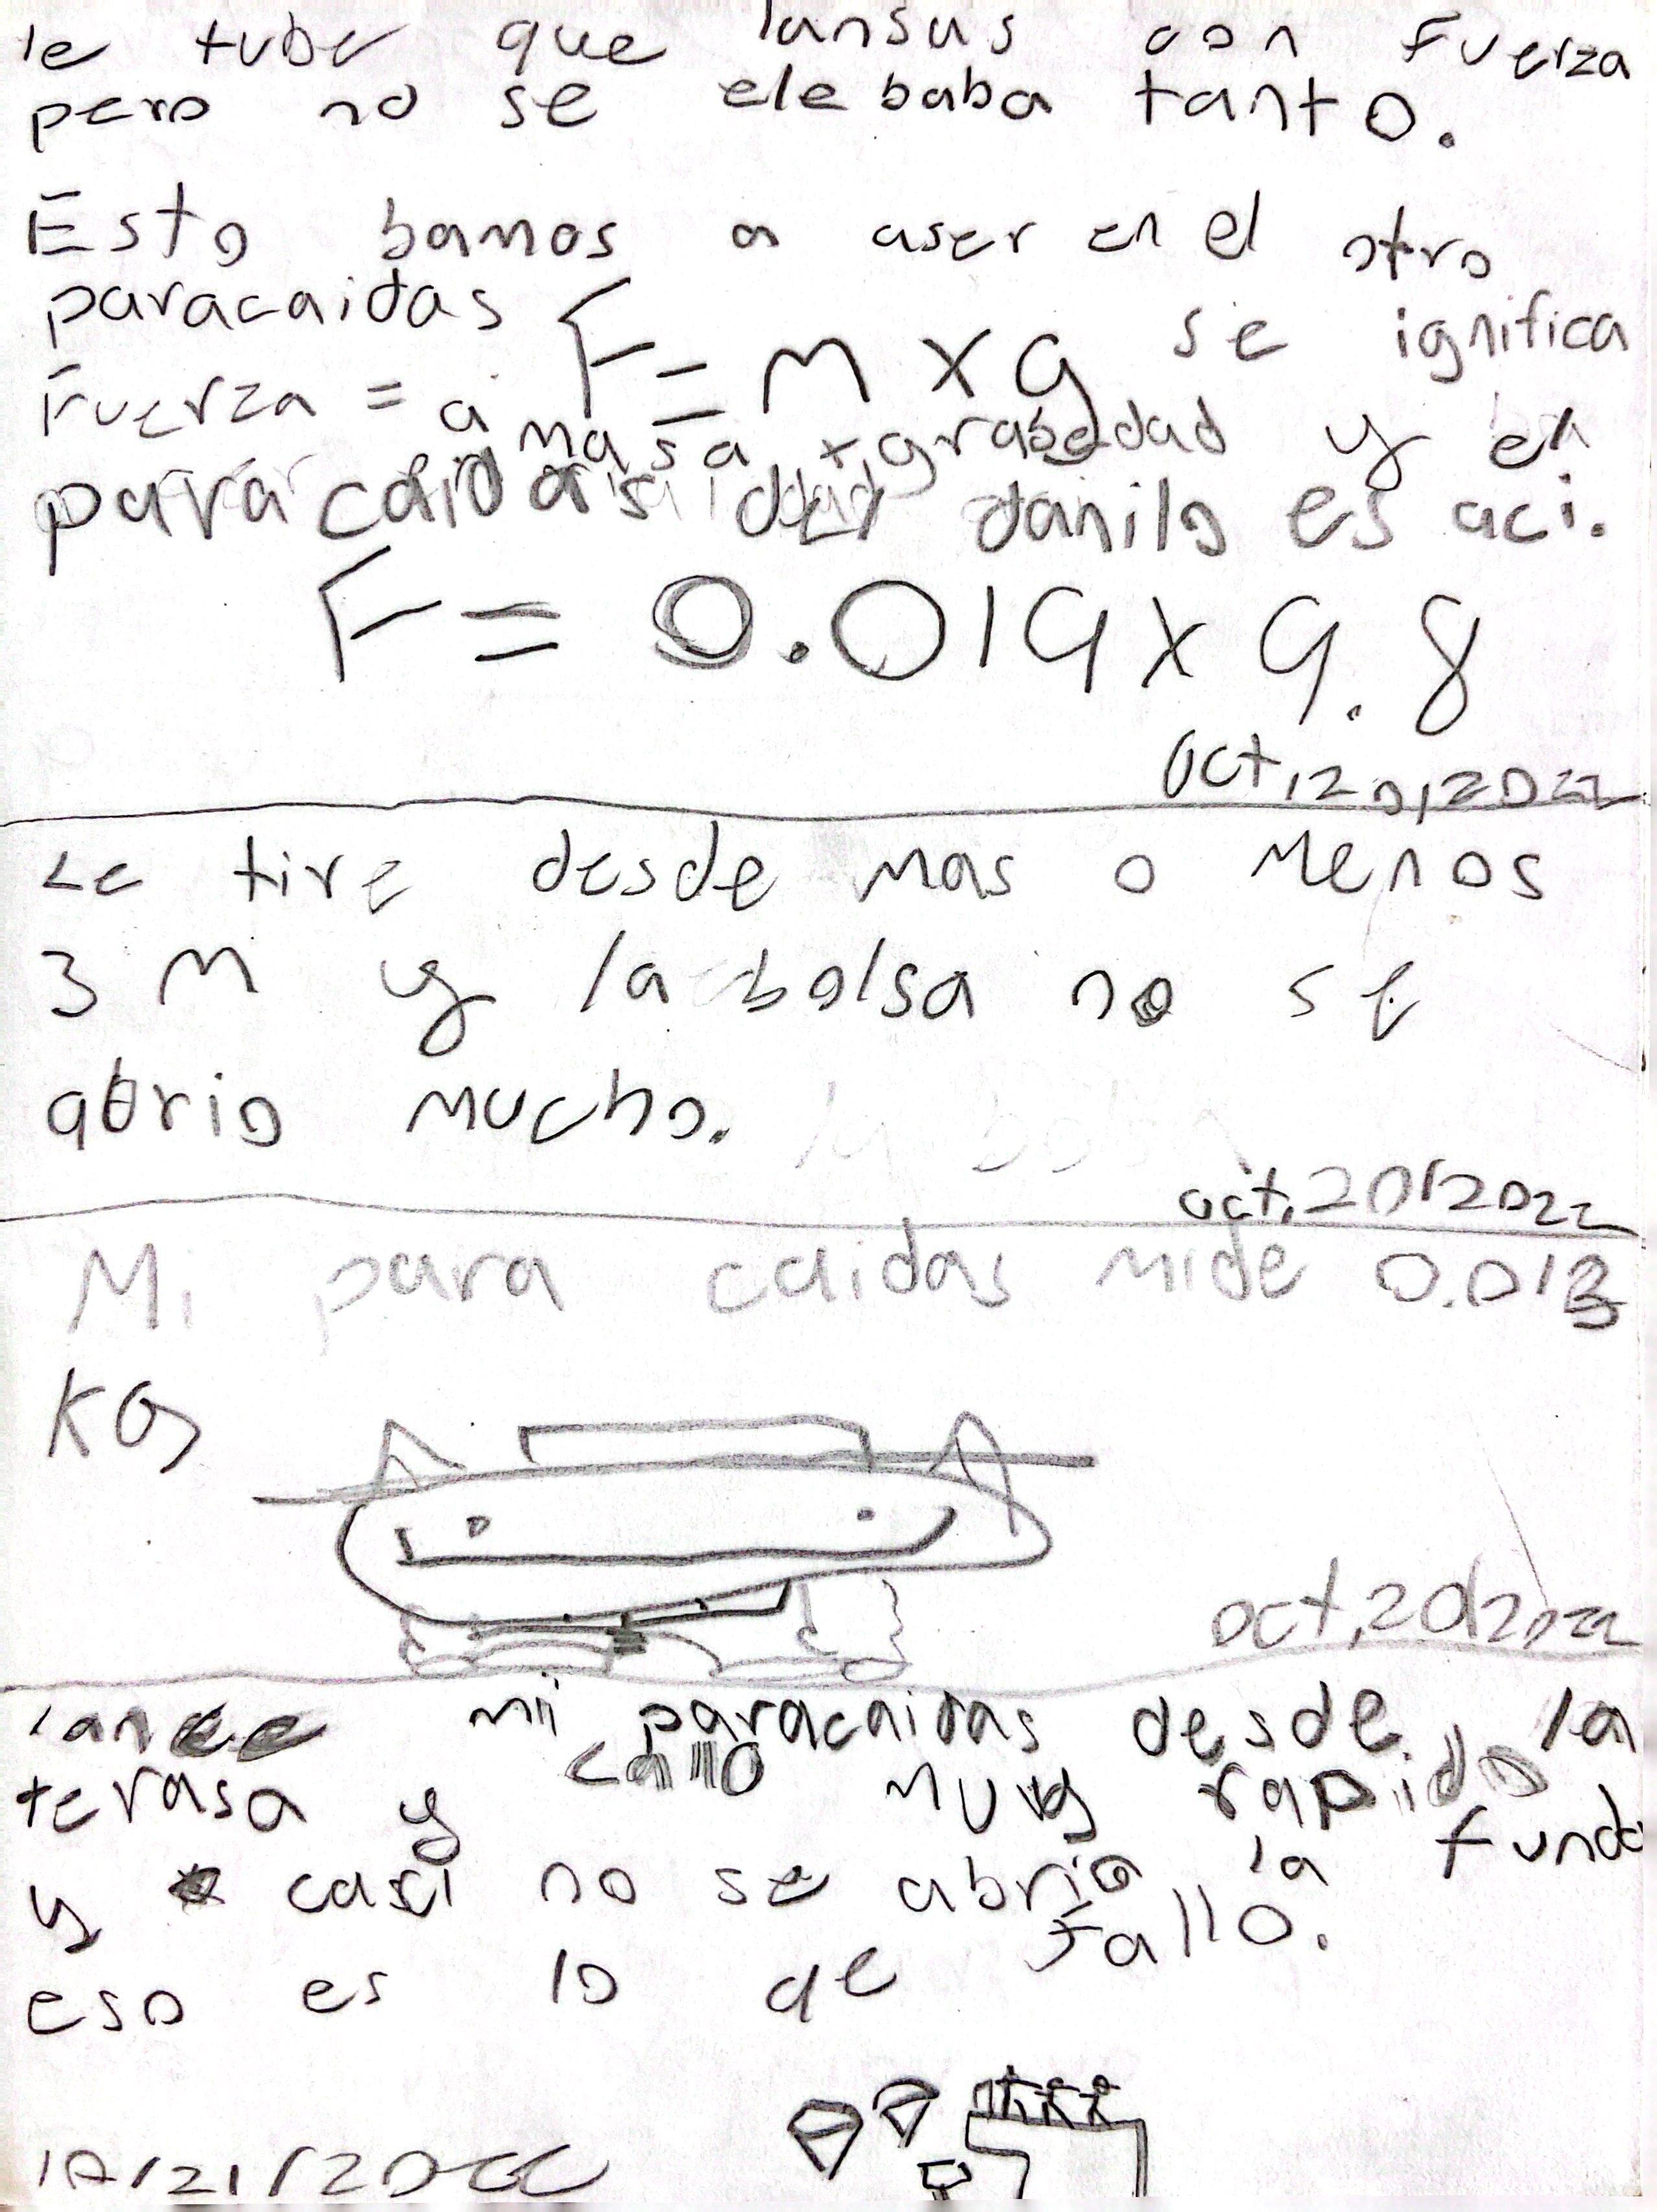 le tube que lansas con fuerza
pero no se elebaba tanto.
Esto bamos a aser en el otro
paracaidas F = M x g se ignifica
Fuerza = a masa x grabedad y en
paracaidas del danilo es aci.
F = 0.019 x 9.8
oct,20,2022
Le tire desde mas o menos
3 M y la bolsa no se
abrio mucho.
oct,20,2022
Mi para caidas mide 0.013
KG
oct,20,2022
lance mi paracaidas desde la
terasa y callo muy rapido
y casi no se abrio la funda
eso es lo qe Fallo.
10/21/2022